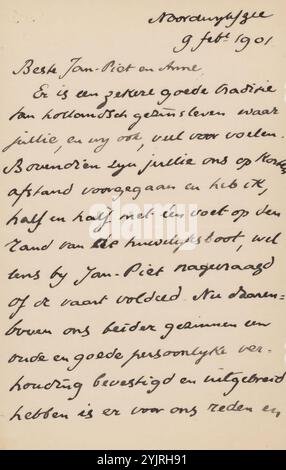 Noordwijk/Zee
9 febr 1901
Beste Jan-Piet en Anne
Er is een zekere goede traditie
van hollandsch gezinsleven waar
jullie, en wy ook, veel voor voelen.
Bovendien zyn jullie ons op korten
afstand voorgegaan en heb ik,
half en half met één voet op den
rand van de huwelyksboot, wel
eens by Jan-Piet nagevraagd
of de vaart voldeed. Nu daaren-
boven ons beider gezinnen een
oude en goede persoonlyke ver-
houding bevestigd en uitgebreid
hebben is er voor ons reden en
alamy
Image ID: 2YJRH91
www.alamy.com